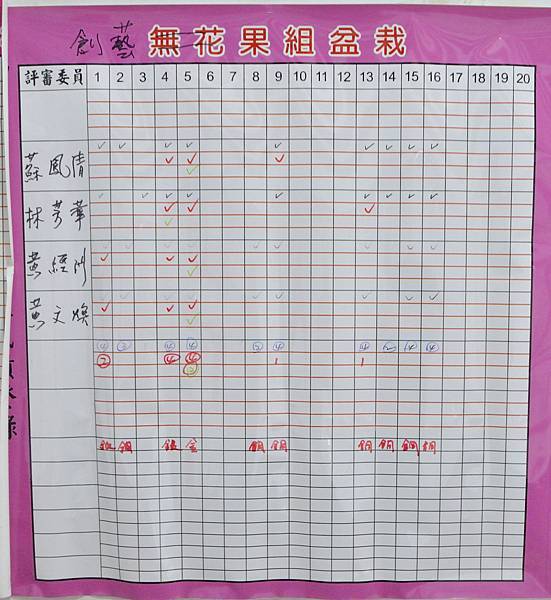 創藝
無花果組盆栽
評審委員 1 2 3 4 5 6 7 8 9 10 11 12 13 14 15 16 17 18 19 20
蘇鳳清
林芳華
黃經
黃文煥
④ ② ④ ④ ② ④ ④ ④ ④
② ④ ④ 1 1
銀 銅 銀 金 銅 銅 銅 銅 銅 銅